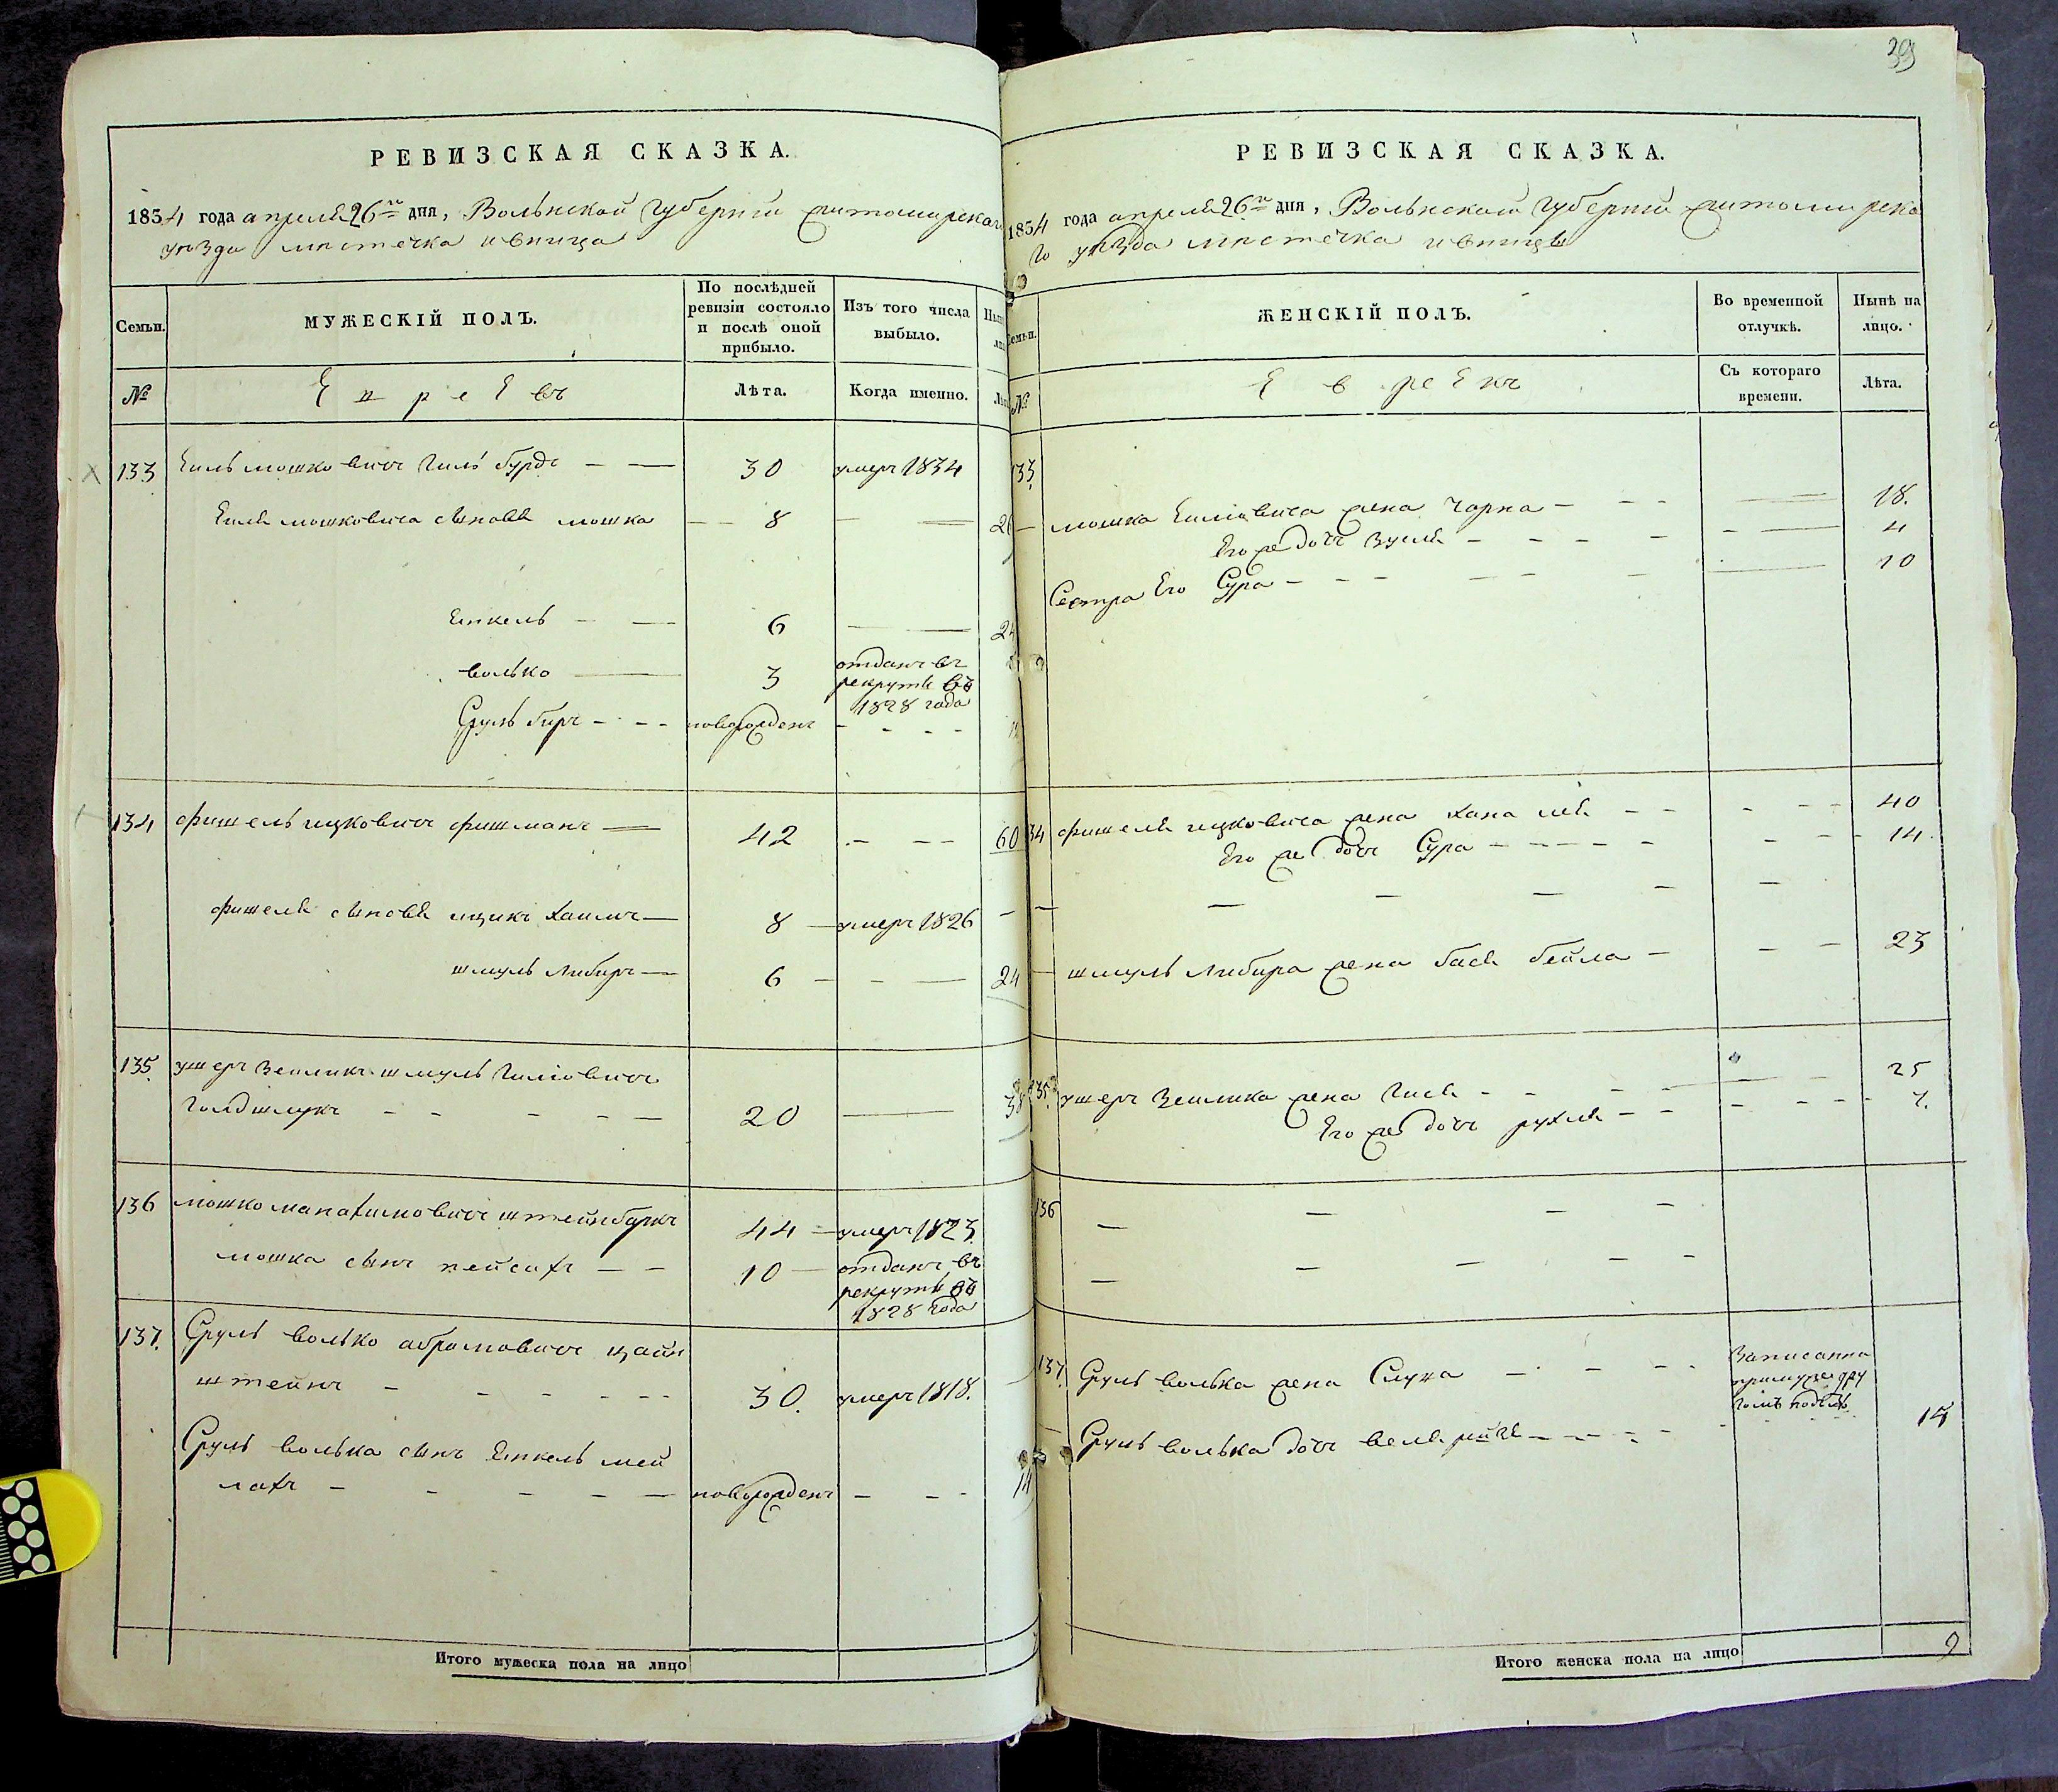 РЕВИЗСКАЯ СКАЗКА.
1834 года апреля 26го дня, Волынской губернии житомирскаго
уезда местечка ивница
Семьи.
МУЖЕСКІЙ ПОЛЪ.
По послѣдней
ревизіи состояло
и послѣ оной
прибыло.
Изъ того числа
выбыло.
№
Евреевъ
Лѣта.
Когда именно.
133 Еиль мошковичъ Гиль бурдъ 30 умеръ 1834
Еиля мошковича сыновя мошка 8
Еинкель 6
волько 3 отданъ въ
рекруты въ
1828 года
Сруль беръ новорожденъ
134 фишель ицковичъ фишманъ 42 60
фишеля сыновя ицикъ Хаимъ 8 умеръ 1826
шмуль либеръ 6 24
135 ушеръ Зеиликъ шмуль
20 38
136 мошко штейнбаркъ 44 умеръ 1823.
мошка сынъ пейсахъ 10 отданъ въ
рекруты въ
1828 года
137. Сруль волько абрамовичъ цайн
штейнъ 30. умеръ 1818.
Сруль волька сынъ Еинкель мей
лахъ новорожденъ 14
Итого мужеска пола на лицо
39
РЕВИЗСКАЯ СКАЗКА.
1834 года апреля 26го дня, Волынской губернии житомирска
го уезда местечка ивницы
Семьи.
ЖЕНСКІЙ ПОЛЪ.
Во временной
отлучкѣ.
Нынѣ на
лицо.
№
Евреекъ
Съ котораго
времени.
Лѣта.
133
мошка Еилиовича жена Чарна 18.
Его же дочь Зуся 4
Сестра Его Сура 10
134 фишеля ицковича жена Хана лея 40
Его же дочь Сура 14.
шмуль либера жена бася бейла 23
135 ушеръ Зеилика жена 25
Его же дочь рухля 7.
136
137 Сруль волька жена Записанна
Сруль волька дочь 17
Итого женска пола на лицо 9